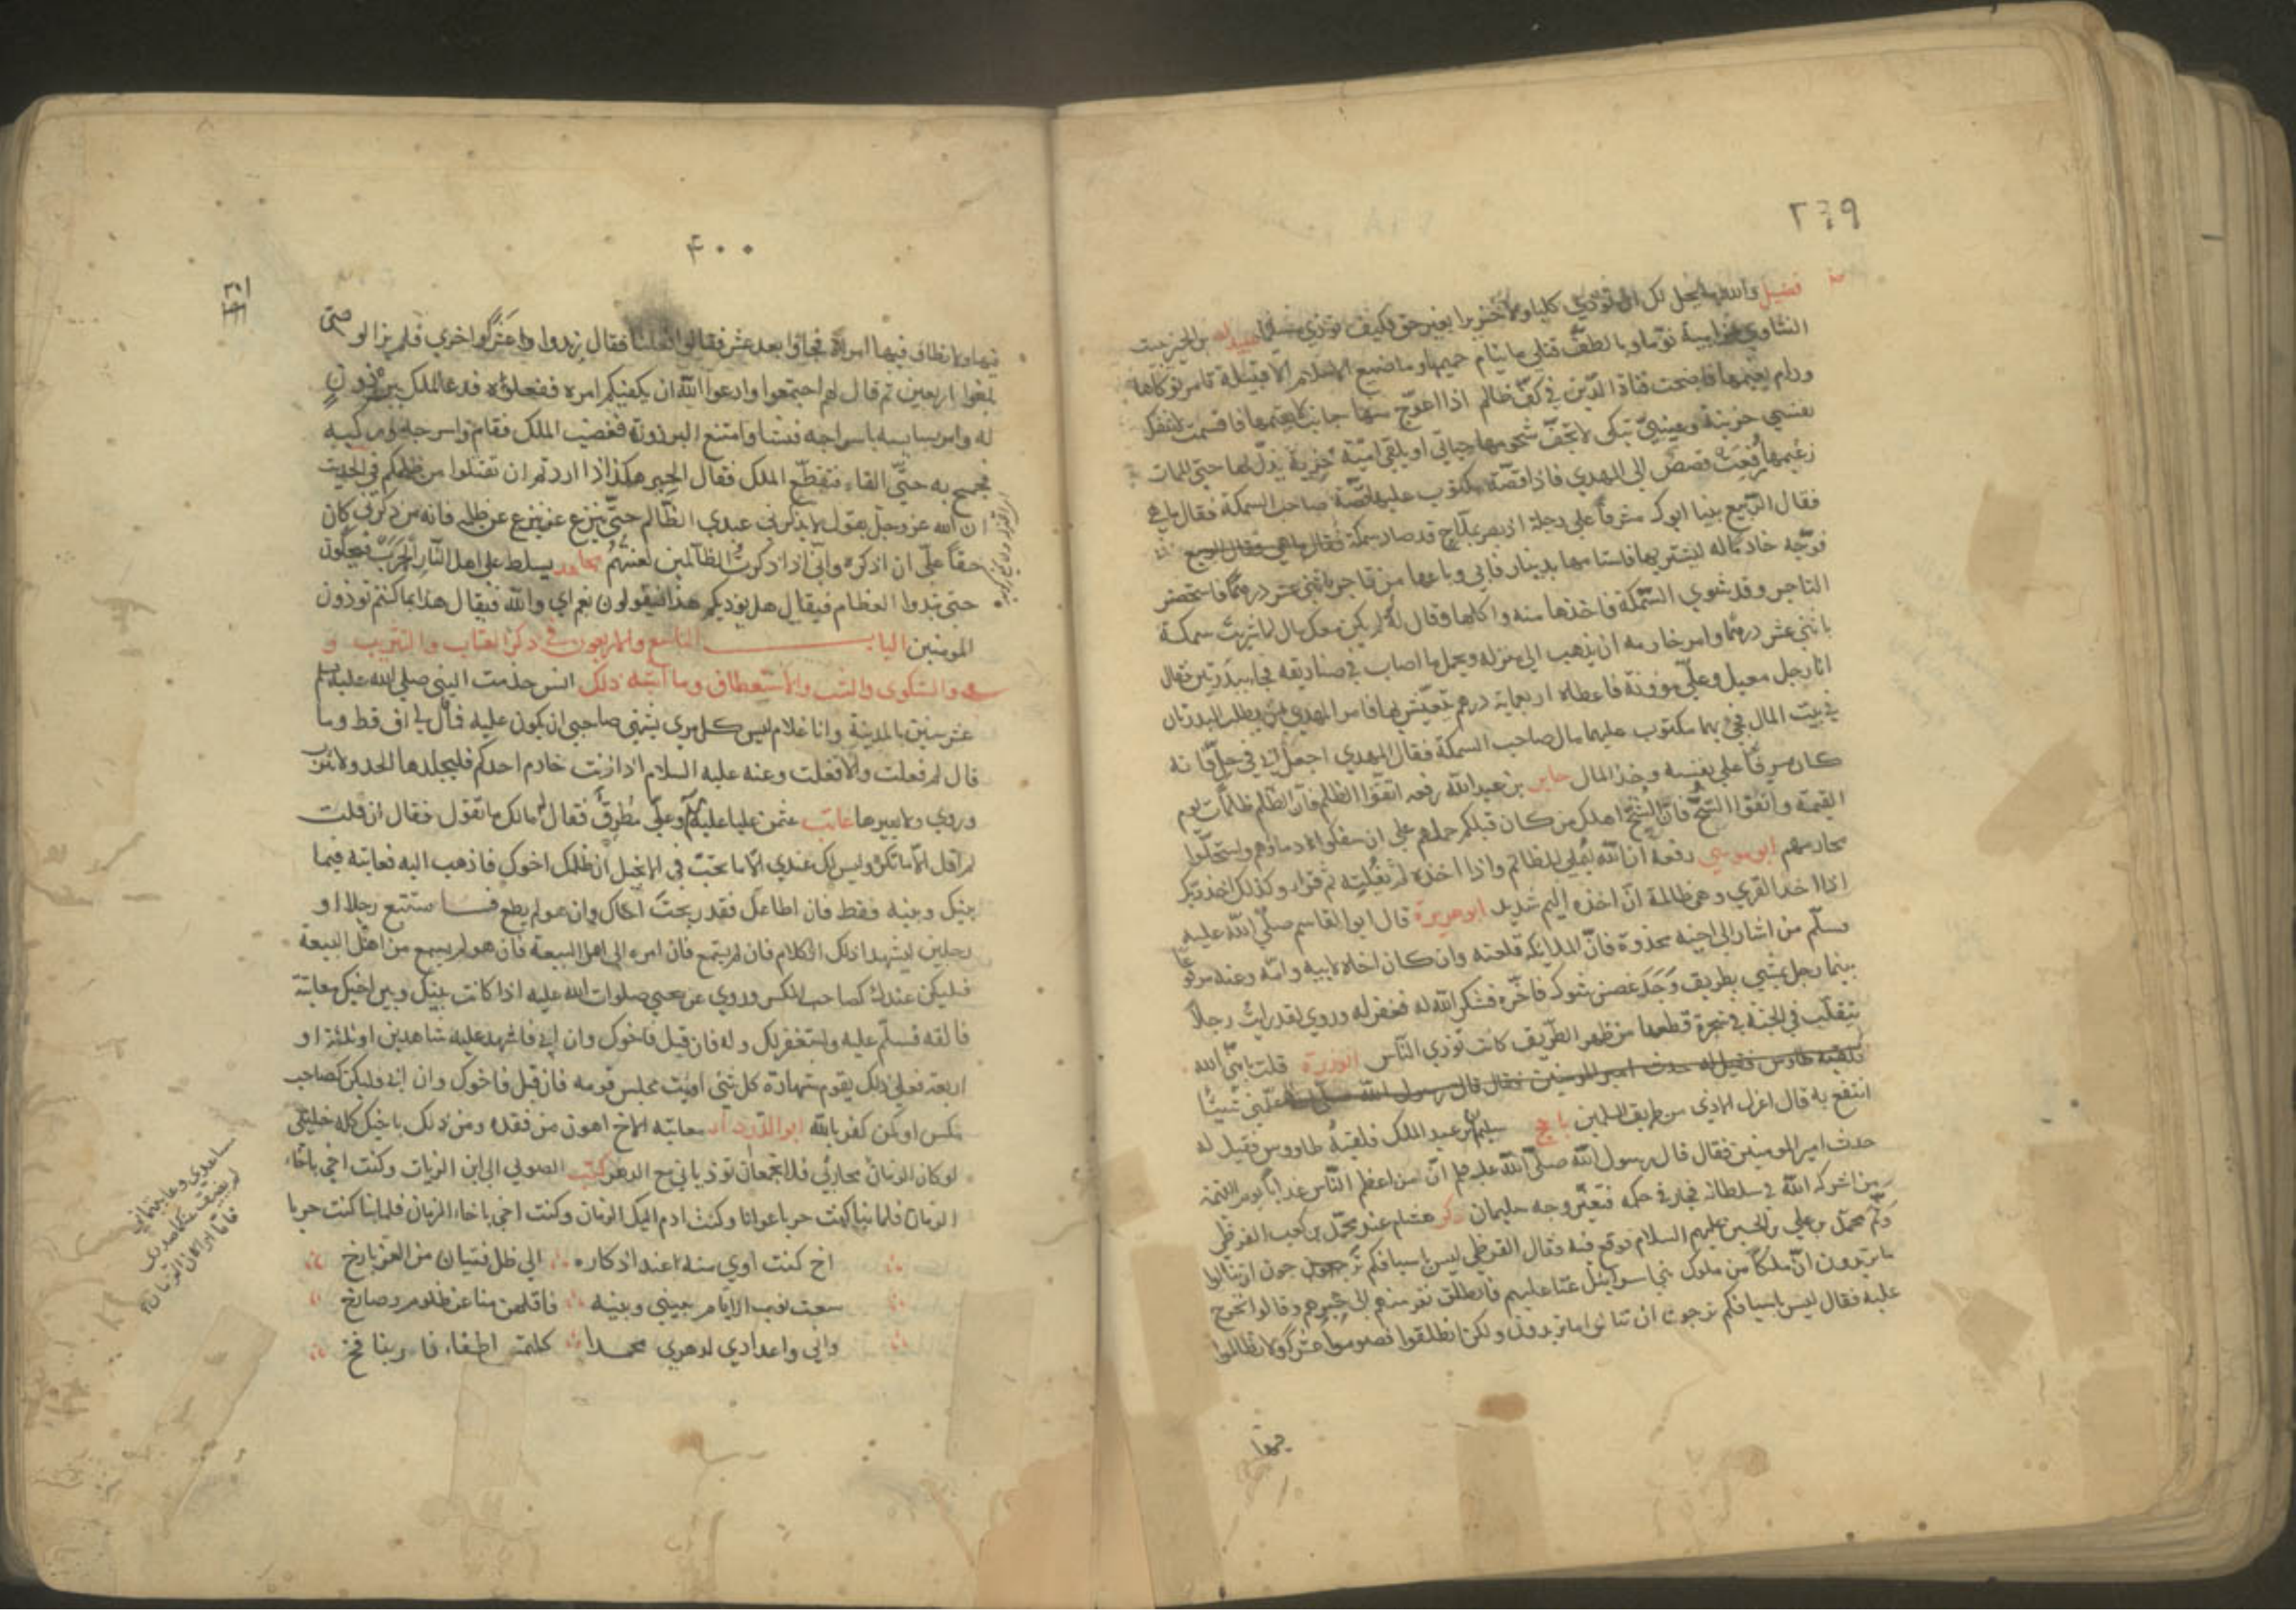 ٣٩٩
فضيل والله ما يحل لك ان تؤذي كلبا ولا خنزيرا بغير حق فكيف تؤذي مسلما عبيد الله بن الحر بيت
النشاوي من امية نوما وبالطف قتلي ما ينام حميمها وما ضيع الاسلام الا قبيلة تامر نوكاها
ودام نعيمها فاضحت قناة الدين في كف ظالم اذا اعوج منها جانب لا يقيمها فاقسمت لا تنفك
نفسي حزينة وعيني تبكي لا تجف شجومها حياتي او يلقي امية خزية يذل لها حتي الممات
زعيمها رفعت قصص الي المهدي فاذا قصة مكتوب عليها قصة صاحب السمكة فقال ما هي
فقال الربيع بينا ابوك مشرفا علي دجلة اذ بصر بملاح قد صاد سمكة
فوجه خادما له ليشتريها فاستامها بدينار فابي وباعها من تاجر باثني عشر درهما فاستحضر
التاجر وقد شوي السمكة فاخذها منه واكلها وقال له لم يكن معك مال لما شريت سمكة
باثني عشر درهما وامر خادمه ان يذهب الي منزله ويحمل ما اصاب في صناديقه فجا ببدرتين فقال
انا رجل معيل وعلي موونة فاعطاه اربعماية درهم تعيش بها فامر المهدي من يطلب البدرتان
في بيت المال فجئ بهما مكتوب عليهما مال صاحب السمكة فقال المهدي اجعل ابي في حل فانه
كان مسرفا علي نفسه وخذ المال جابر بن عبد الله رفعه اتقوا الظلم فان الظلم ظلمات يوم
القيمة واتقوا الشح فان الشح اهلك من كان قبلكم حملهم علي ان سفكوا دماءهم واستحلوا
محارمهم ابو موسي رفعه ان الله يملي للظالم واذا اخذه لم يفلته ثم قراء وكذلك اخذ ربك
اذا اخذ القري وهي ظالمة ان اخذه اليم شديد ابو هريرة قال ابو القاسم صلي الله عليه
وسلم من اشار الي اخيه بحديدة فان الملايكة تلعنه وان كان اخاه لابيه وامه وعنه مرفوعا
بينما رجل يمشي بطريق وجد غصن شوك فاخره فشكر الله له فغفر له وروي لقد رايت رجلا
يتقلب في الجنة في شجرة قطعها من ظهر الطريق كانت تؤذي الناس ابو برزة قلت يا نبي الله
علمني شيئا
انتفع به قال اعزل الاذي من طريق المسلمين سليمان بن عبد الملك فلقيه طاووس فقيل له
حدث امير المومنين فقال قال رسول الله صلي الله عليه وسلم ان من اعظم الناس عذابا يوم القيمة
من اشركه الله في سلطانه فجار في حكمه فتغير وجه سليمان ذكر هشام عند محمد بن كعب القرظي
وثم محمد بن علي بن الحسين عليهم السلام فوقع فيه فقال القرظي ليس باسيافكم ترجون ان تنالوا
ما تريدون ان ملكا من ملوك بني اسرايئل عتا عليهم فانطلق نفر منهم الي حبرهم وقالوا نخرج
عليه فقال ليس باسيافكم ترجون ان تنالوا ما تريدون ولكن انطلقوا فصوموا عشرا ولا تظالموا
فيها
٤٠٠
فيها ولا نظاف فيها امراة فجاؤا بعد عشر فقالوا فعلنا فقال زيدوا عشرا اخري فلم يزالوا حتي
بلغوا اربعين ثم قال لهم اجتمعوا وادعوا الله ان يكفيكم امره ففعلوه فدعا الملك ببرذون
له وامر سايسه باسراجه فتشاوا متنع البرذون فغضب الملك فقام واسرجه وركبه
فجمح به حتي القاه فتقطع الملك فقال الحبر هكذا اذا اردتم ان تقتلوا من ظلمكم في الحديث
ان الله عز وجل يقول لا يذكرني عبدي الظالم حتي ينزع عن ظلمه فانه من ذكرني كان
حقا علي ان اذكره واني اذا ذكرت الظالمين لعنتهم مجاهد يسلط علي اهل النار الجرب فيحكون
حتي تبدوا العظام فيقال هل يؤذيكم هذا فيقولون نعم اي والله فيقال هذا بما كنتم تؤذون
المومنين الباب التاسع والاربعون في ذكر العتاب والتثريب و
والشكوي والبث والاستعطاف وما اشبه ذلك انس خدمت النبي صلي الله عليه وسلم
عشر سنين بالمدينة وانا غلام ليس كل امري يشتهي صاحبي ان يكون عليه فما قال لي اف قط وما
قال لم فعلت والا فعلت وعنه عليه السلام اذا زنت خادم احدكم فليجلدها الحد ولا يثرب
وروي ولا يعيرها عاتب عثمن عليا عليه السلام وعلي مطرق فقال له مالك ما تقول فقال ان قلت
لم اقل الا ما تكره وليس لك عندي الا ما تحب في الانجيل ان ظلمك اخوك فاذهب اليه فعاتبه فيما
بينك وبينه فقط فان اطاعك فقد ربحت اخاك وان هو لم يطع فاستتبع رجلا او
رجلين ليشهدا ذلك الكلام فان لم يستمع فان امره الي اهل البيعة فان هو لم يسمع من اهل البيعة
فليكن عندك كصاحب المكس وروي عن عيسي صلوات الله عليه اذا كانت بينك وبين اخيك معاتبة
فالقه فسلم عليه واستغفر لك وله فان قبل فاخوك وان ابي فاشهد عليه شاهدين او ثلثة او
اربعة فعلي ذلك يقوم شهادة كل شئ امت مجلس قومه فان قبل فاخوك وان ابي فليكن كصاحب
مكس او كمن كفر بالله ابو الدرداء معاتبة الاخ اهون من فقده ومن ذلك باخيك كله خليلي
لو كان الزمان محاربي فلا تجمعان تؤذياني مع الدهر كتب الصولي الي ابن الزيات وكنت اخي باخاء
الزمان فلما نبا كنت حربا عوانا وكنت اذم اليك الزمان وكنت اخي باخاء الزمان فلما نبا كنت حربا
اخ كنت اوي منه عند اذكاره الي ظل فتيان من العز باذخ
سعت نوب الايام بيني وبينه فاقلعن منا عن ظلوم وصارخ
واني واعدادي لدهري محمدا كملتمس اطفاء نار بنافخ